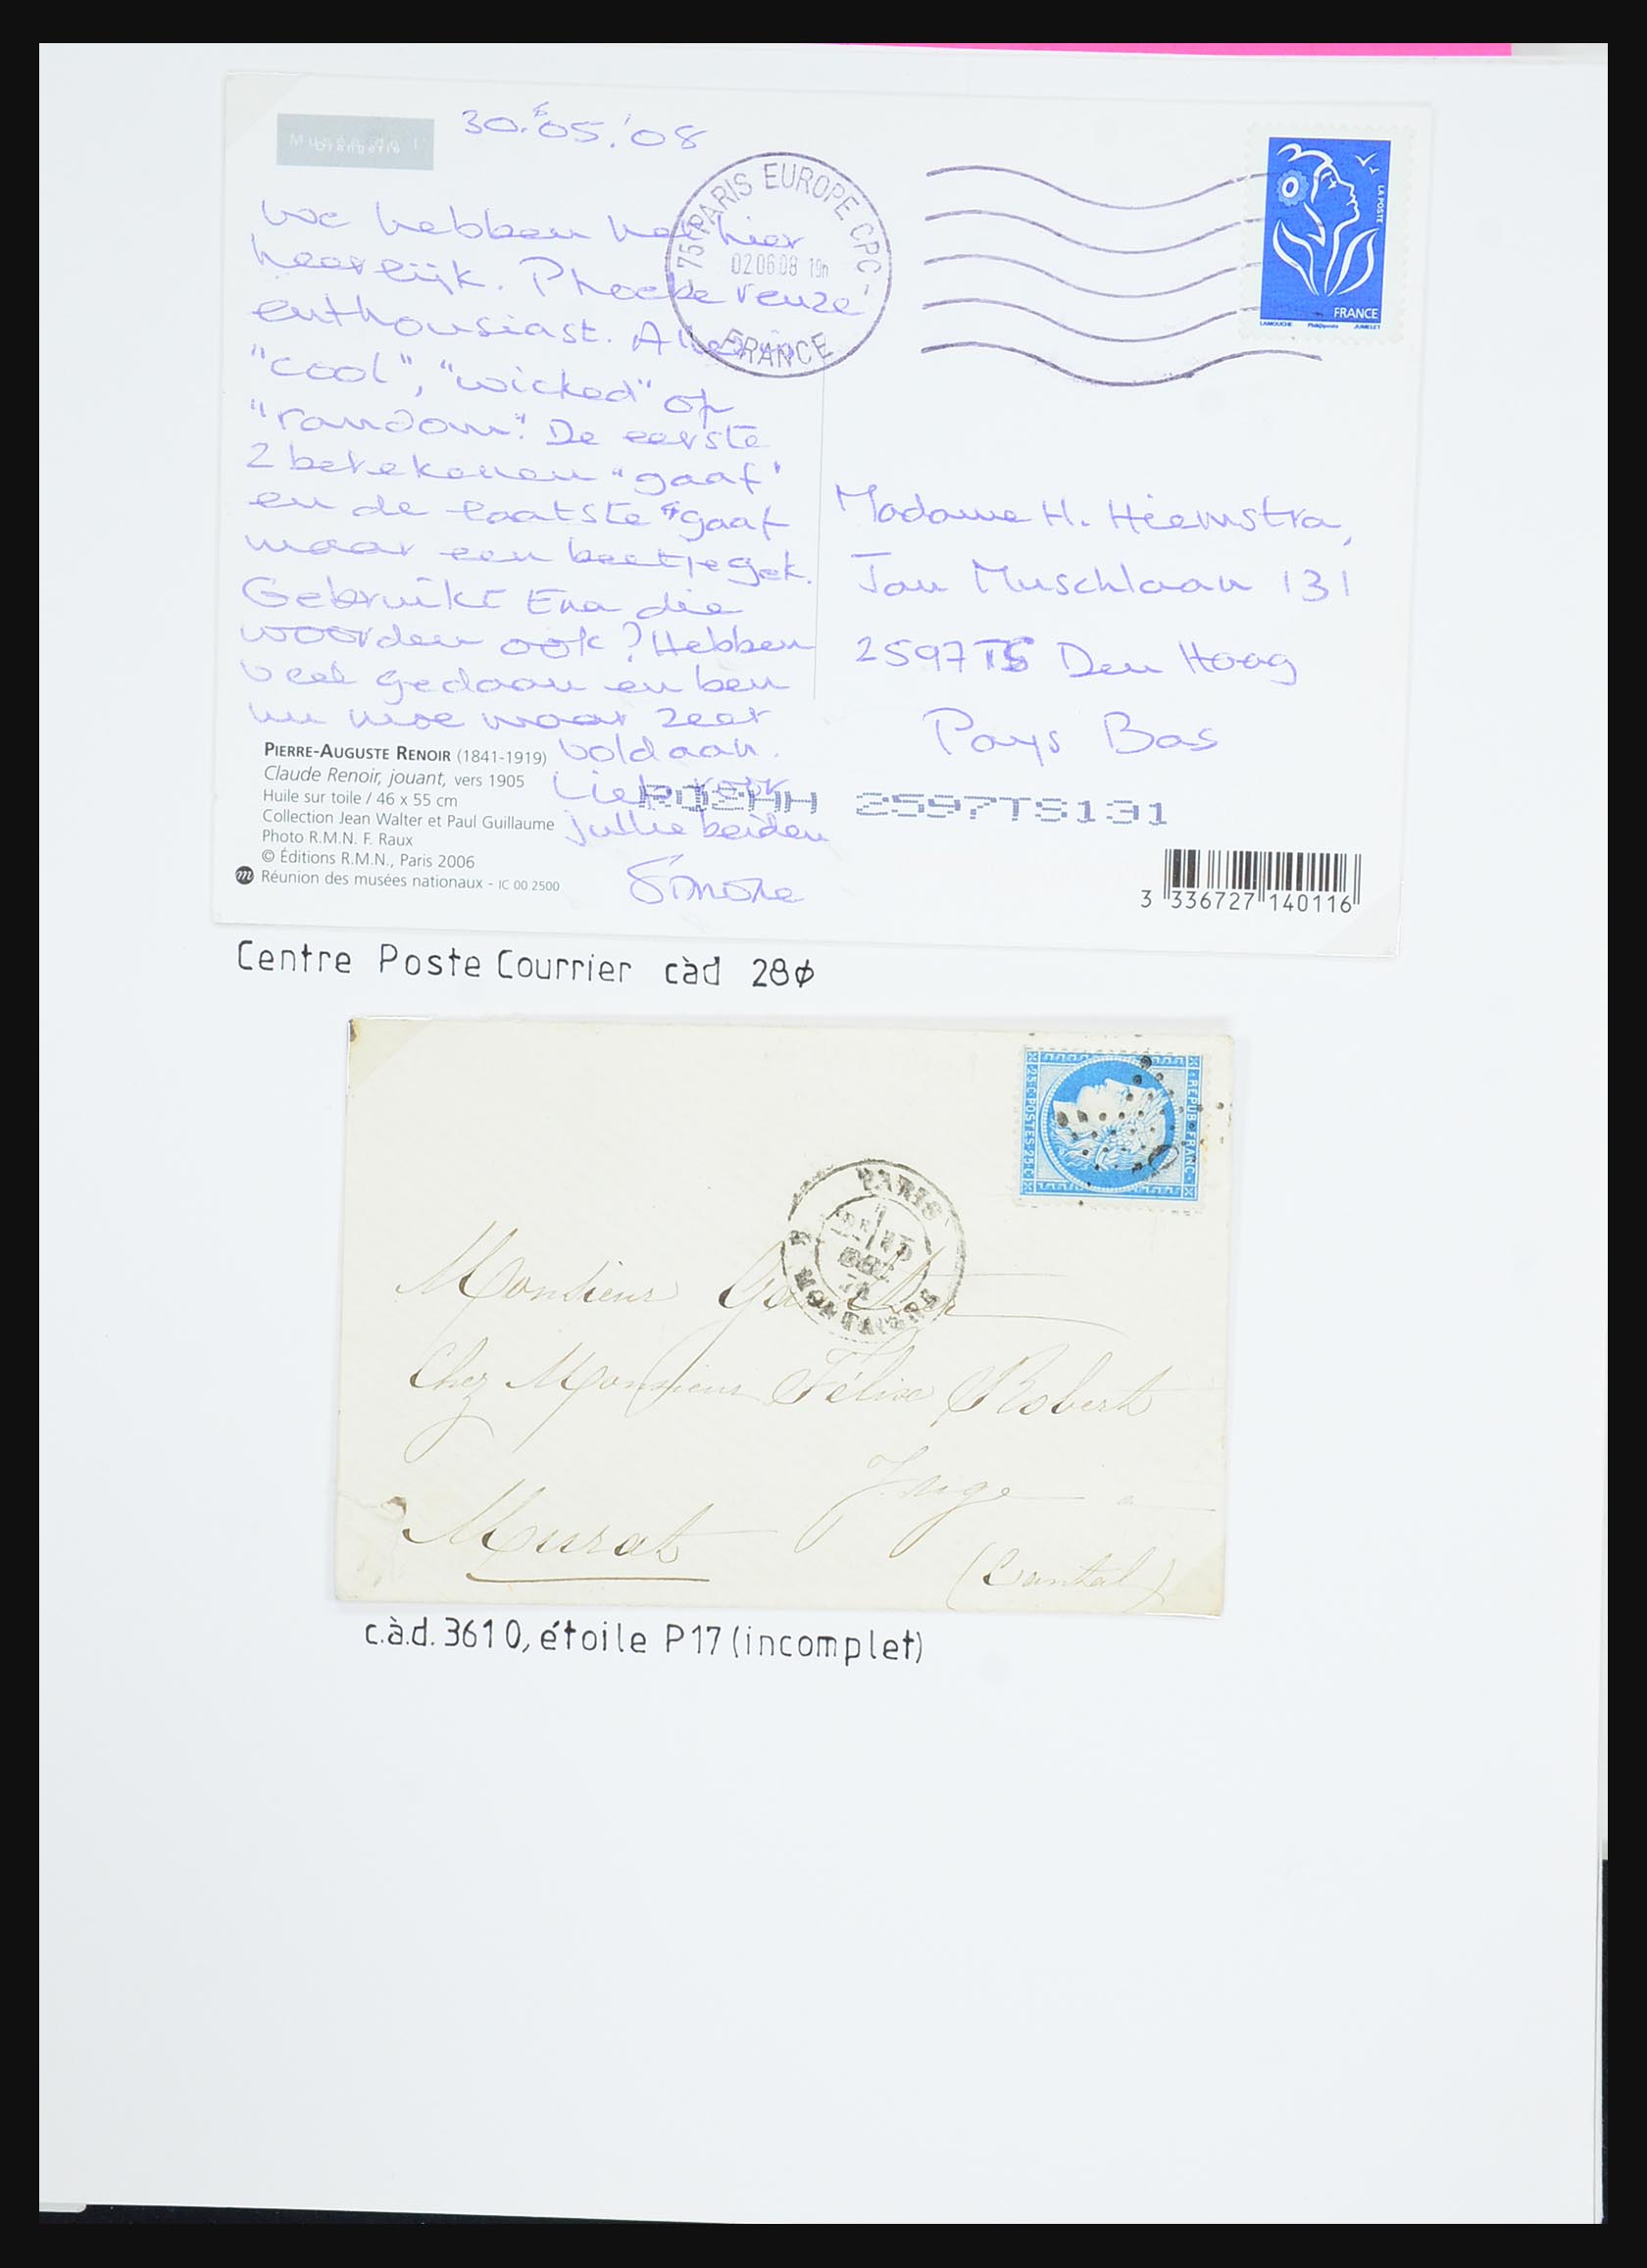 Musée de l'
Orangerie
30.05.'08
75 PARIS EUROPE CPC
02.06.08 19h
FRANCE
LA POSTE
FRANCE
LAMOUCHE Phil@poste JUMELET
We hebben het hier
heerlijk. Phoebe reuze
enthousiast. Alles is
"cool", "wicked" of
"random". De eerste
2 betekenen "gaaf"
en de laatste "gaaf
maar een beetje gek.
Gebruikt Eva die
woorden ook? Hebben
veel gedaan en ben
nu moe maar zeer
voldaan.
Liefs voor
jullie beiden
Simone
Madame H. Hiemstra,
Jan Muschlaan 131
2597TS Den Haag
Pays Bas
2597TS131
PIERRE-AUGUSTE RENOIR (1841-1919)
Claude Renoir, jouant, vers 1905
Huile sur toile / 46 x 55 cm
Collection Jean Walter et Paul Guillaume
Photo R.M.N. F. Raux
© Éditions R.M.N., Paris 2006
m Réunion des musées nationaux - IC 00 2500
3 336727 140116
Centre Poste Courrier càd 28φ
REPUB·FRANC·
25·C·POSTES·25·C
PARIS
Monsieur
Chez Monsieur Félix Robert
Juge à
Murat
(Cantal)
c.à.d. 3610, étoile P17 (incomplet)